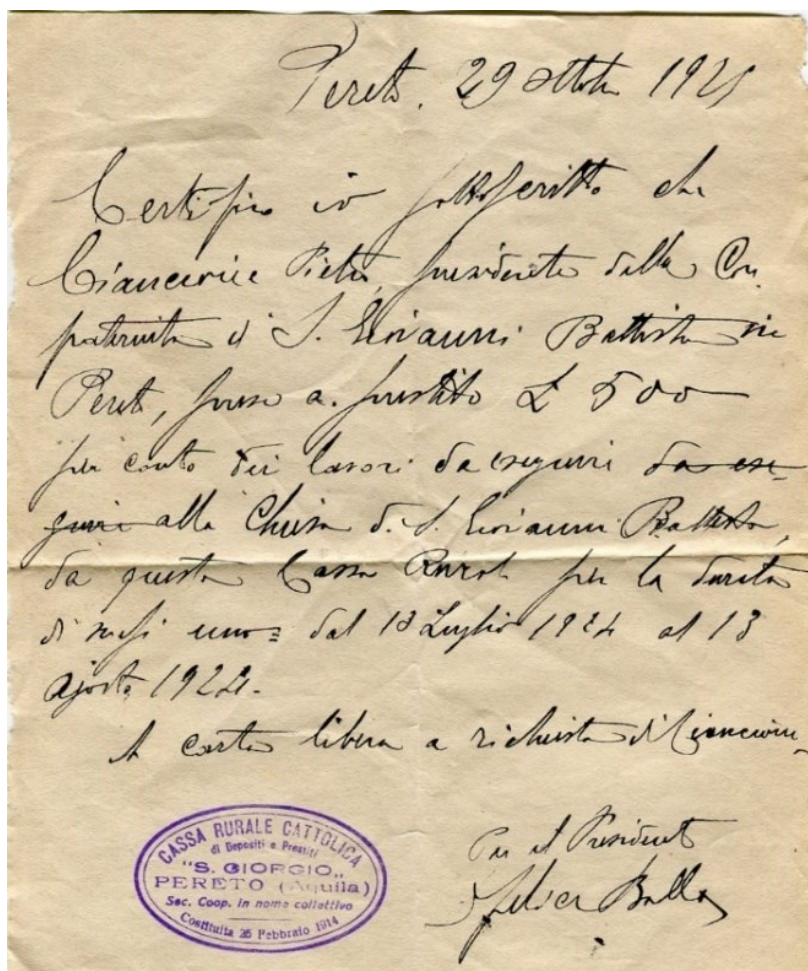 Pereto, 29 ottobre 1925
Certifico io sottoscritto che
Pietro, presidente della Con
fraternita di S. Giovanni Battista in
Pereto, prese a prestito £ 500
per conto dei lavori da eseguirsi da ese-
guire alla Chiesa di S. Giovanni Battista,
da questa Cassa Rurale per la durata
di mesi uno = dal 13 Luglio 1924 al 13
agosto 1924.
A carta libera a richiesta di
Per il Presidente
Felice
CASSA RURALE CATTOLICA
di Depositi e Prestiti
"S. GIORGIO"
PERETO (Aquila)
Soc. Coop. in nome collettivo
Costituita 25 Febbraio 1914